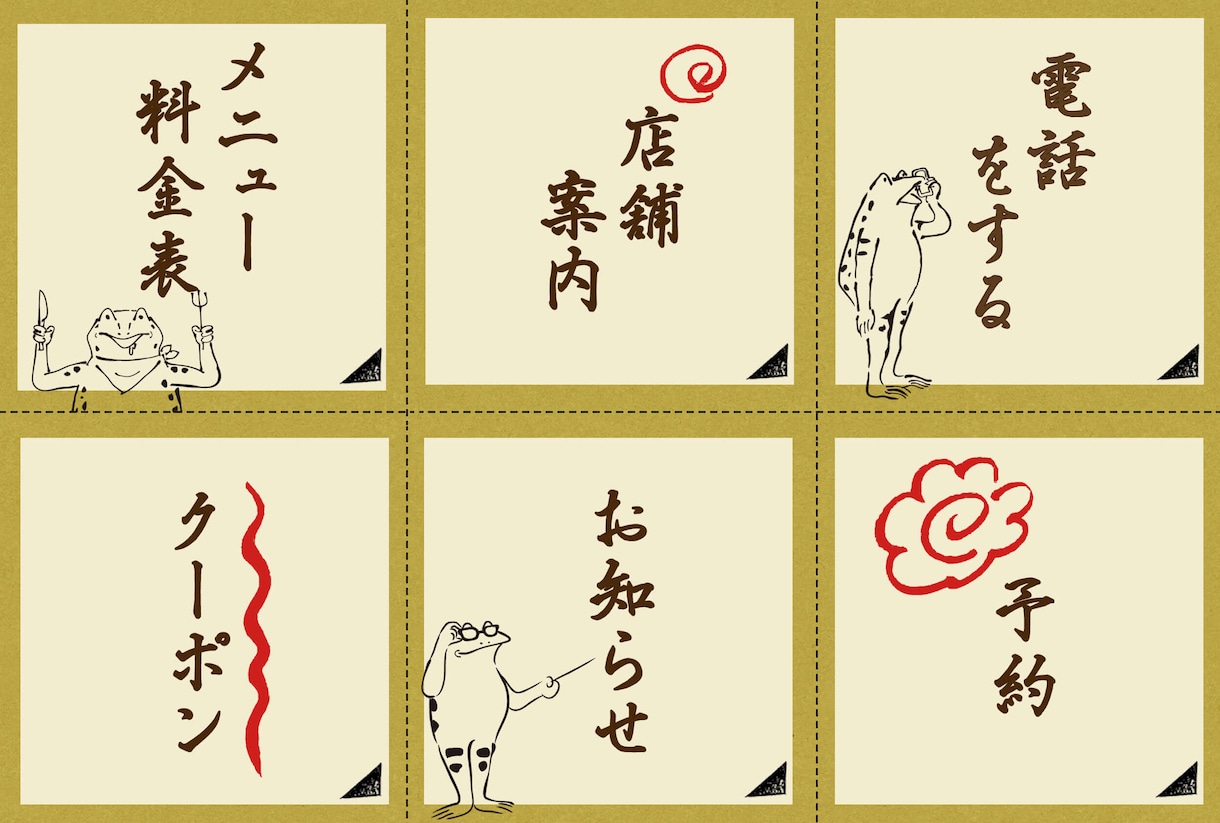 メニュー
料金表
店舗
案内
電話
をする
クーポン
お知らせ
予約